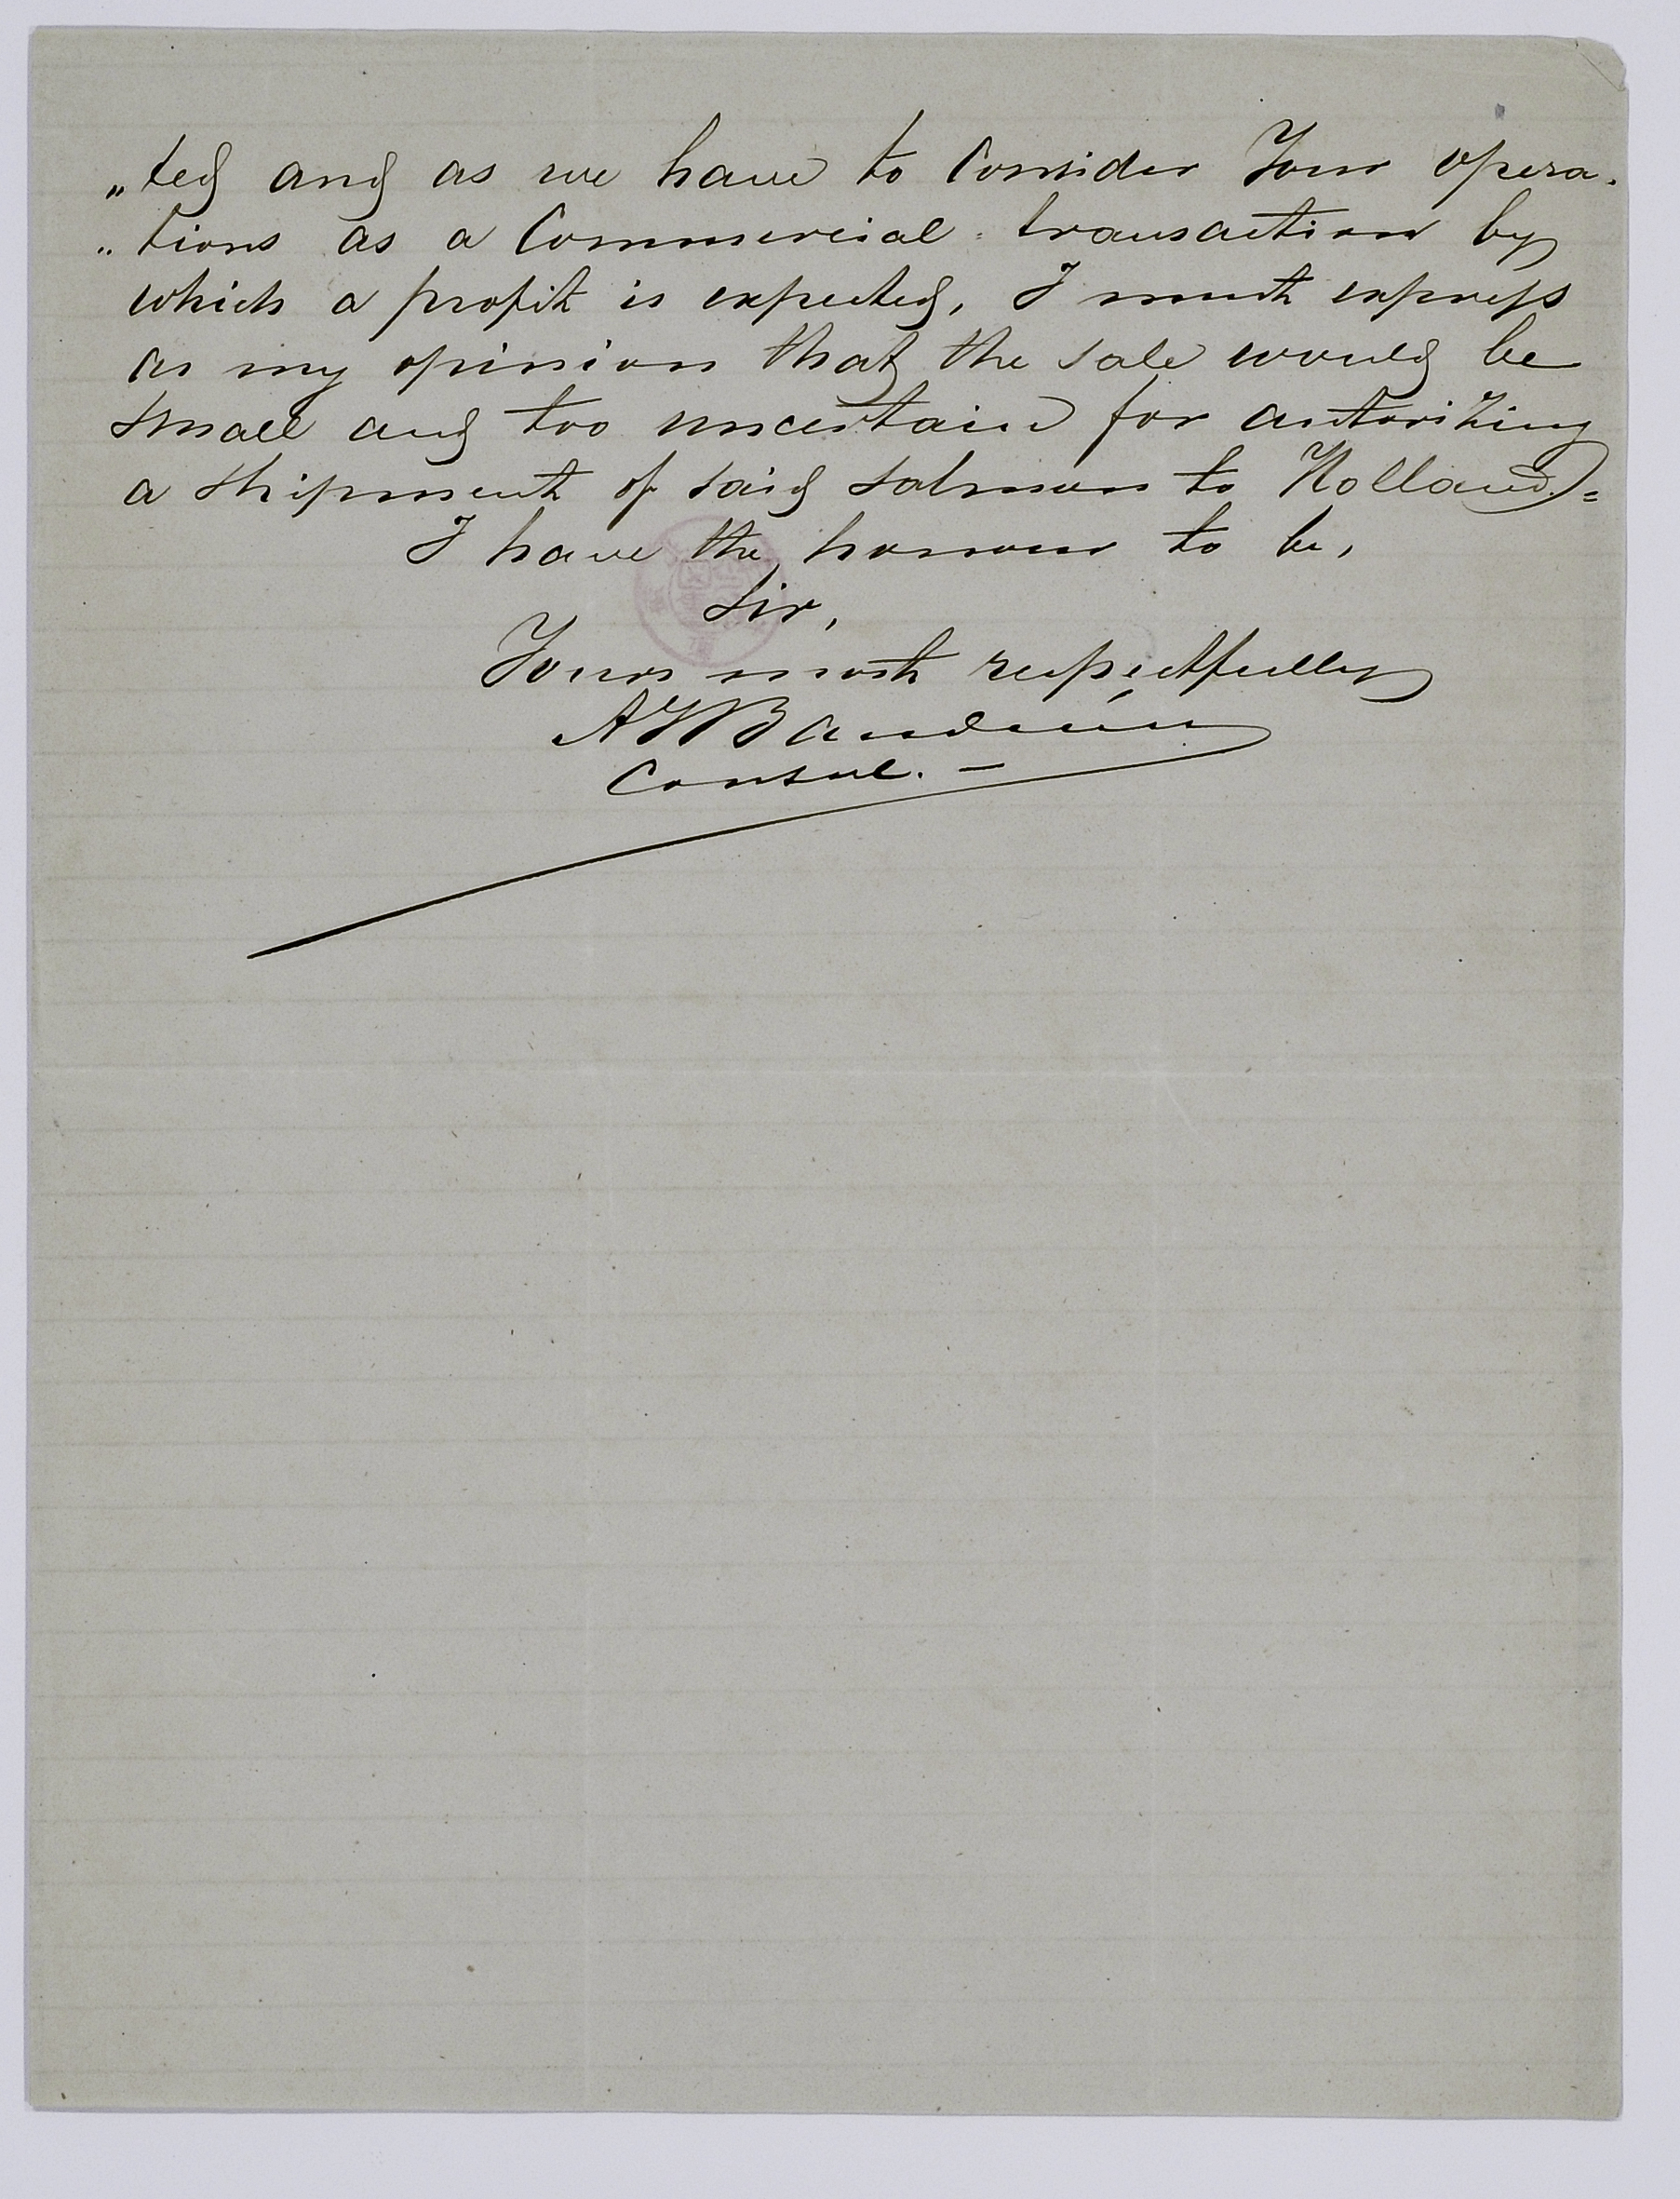 „ted and as we have to Consider Your opera-
„tions as a Commercial transaction by
which a profit is expected, I must express
as my opinion that the sale would be
small and too uncertain for autorizing
a shipment of said salmon to Holland.=
I have the honour to be,
Sir,
Yours most respectfully
AJBauduin
Consul. –